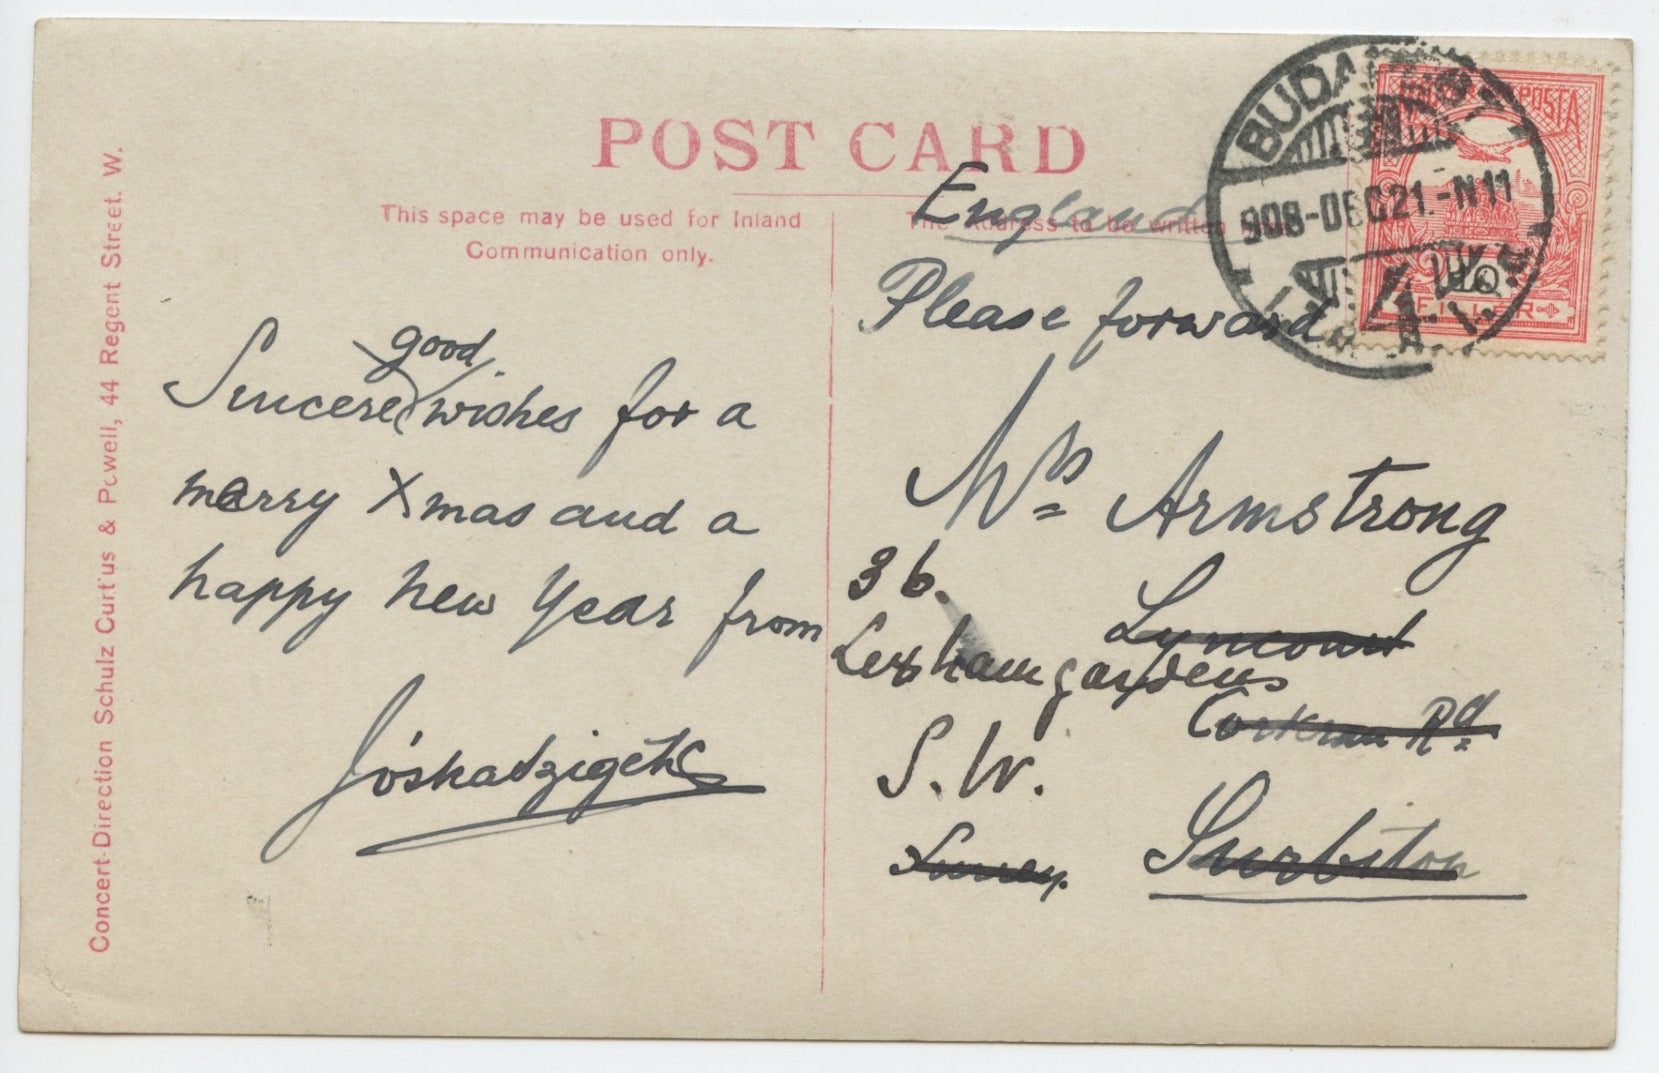 POST CARD
This space may be used for Inland
Communication only.
The Address to be written
England
Please forward
Sincere good wishes for a
merry Xmas and a
happy new year from
Jóskaszigeti
Mrs Armstrong
36.
Lyncourt
Lexham gardens
Corkran Rd
S. W.
Surrey.
Surbiton
Concert-Direction Schulz Curtius & Powell, 44 Regent Street. W.
BUDAPEST
908-DEC21.-N11
MAGYAR POSTA
10
FILLER